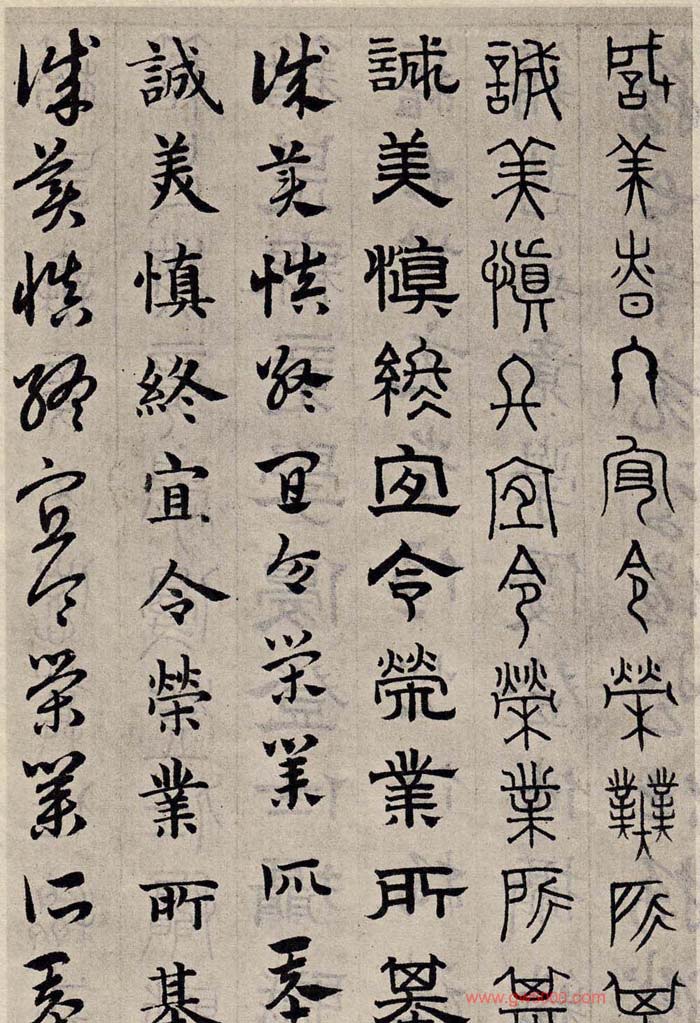 誠美慎終宜令榮業所基
誠美慎終宜令榮業所基
誠美慎終宜令榮業所基
誠美慎終宜令榮業所基
誠美慎終宜令榮業所基
誠美慎終宜令榮業所基
www.g43000.com